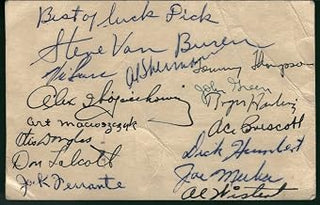 Best of luck Dick
Steve Van Buren
Al Sherman
Tommy Thompson
John Green
Alex Wojciechowicz
Art Macioszczyk
Ace Prescott
Otis Douglas
Dick Humbert
Don Talcott
Joe Muha
Jack Ferrante
Al Wistert